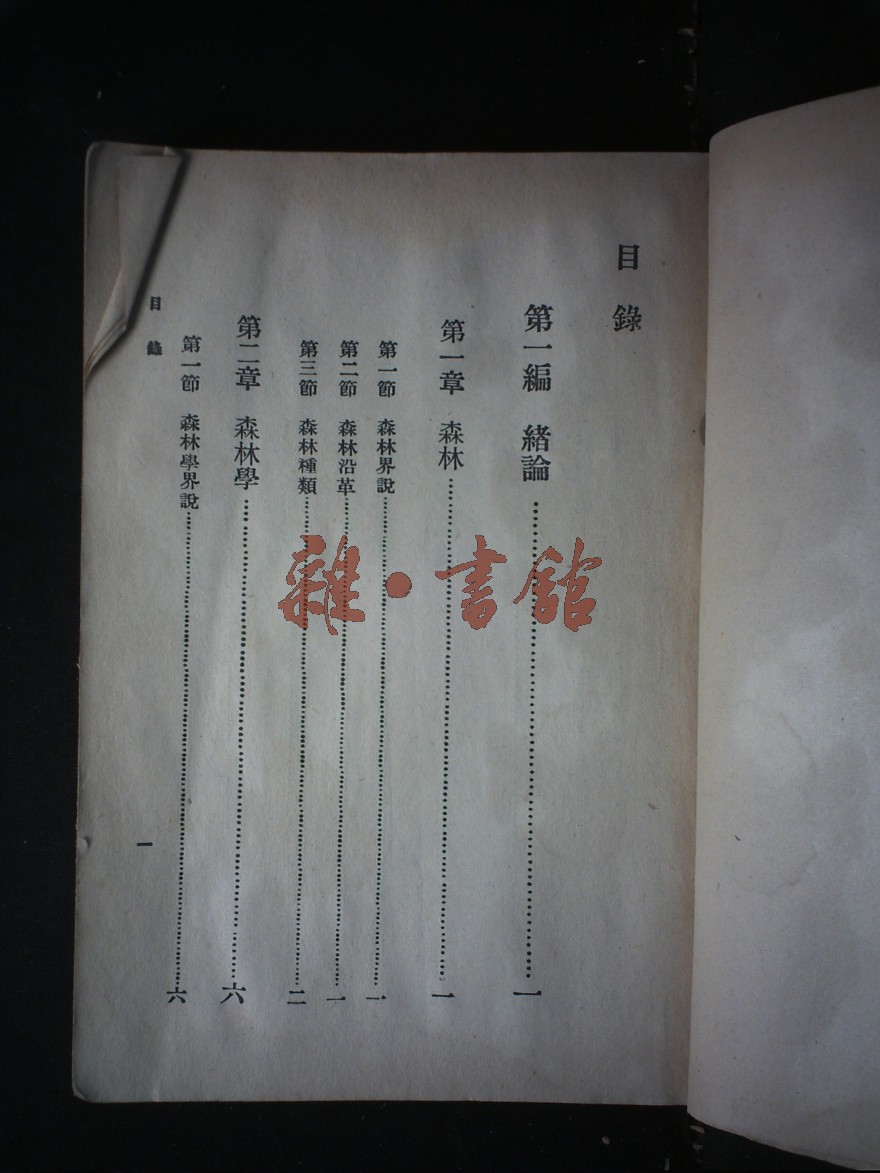 目錄
第一編　緒論……………一
第一章　森林……………一
第一節　森林界說……………一
第二節　森林沿革……………一
第三節　森林種類……………二
第二章　森林學……………六
第一節　森林學界說……………六
目錄
一
雜·書館